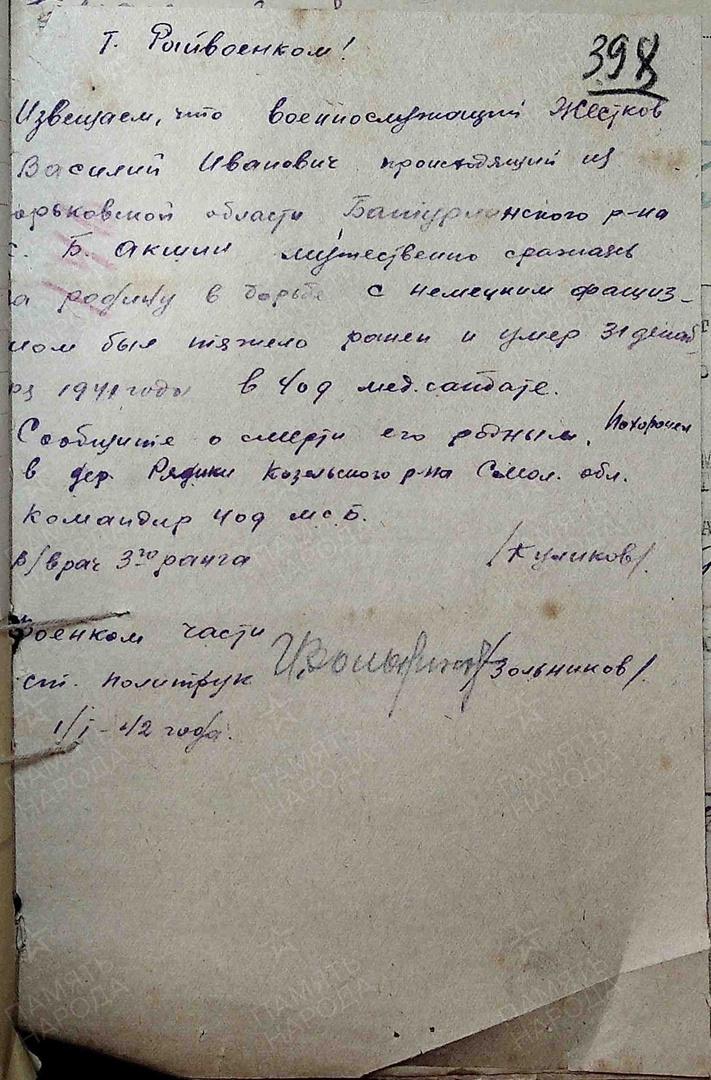 Т. Райвоенком!
398
Извещаем, что военнослужащий Жестков
Василий Иванович происходящий из
орьковской области Батурлинского р-на
с. Б. Акши мужественно сражаясь
а родину в борьбе с немецким фашиз-
мом был тяжело ранен и умер 31 декаб
ря 1941 года в 409 мед.санбате.
Сообщите о смерти его родным. Похоронен
в дер. Рядики Козельского р-на Смол. обл.
Командир 409 мсб.
в/врач 3го ранга /Куликов/.
Военком части
ст. политрук /Зольников/.
1/I-42 года.
ПАМЯТЬ НАРОДА